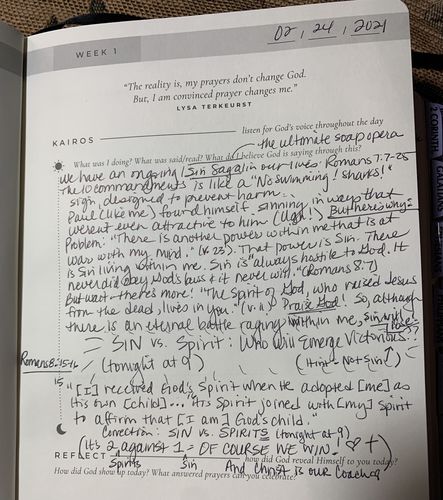 02, 24, 2021
WEEK 1
"The reality is, my prayers don't change God.
But, I am convinced prayer changes me."
LYSA TERKEURST
KAIROS
listen for God's voice throughout the day
the ultimate soap opera
What was I doing? What was said/read? What do I believe God is saying through this?
We have an ongoing Sin Saga in our lives. Romans 7:7-25
The 10 commandments is like a "No swimming! Sharks!"
sign, designed to prevent harm...
Paul (like me) found himself sinning in ways that
weren't even attractive to him (ugh!) But here's why:
Problem: "There is another power within me that is at
war with my mind." (v. 23). That power is Sin. There
is Sin living within me. Sin is "always hostile to God. It
never did obey God's laws & it never will." (Romans 8:7)
But wait - there's more! "The Spirit of God, who raised Jesus
from the dead, lives in you." (v. 11) Praise God! So, although
there is an eternal battle raging within me, sin will
lose!
= SIN vs. Spirit: Who Will Emerge Victorious?
Romans 8:15-16
(tonight at 9)
(Hint - Not Sin!)
15 "[I] received God's Spirit when He adopted [me] as
His own [child]... His Spirit joined with [my] Spirit
to affirm that [I am] God's child."
Correction: SIN vs. SPIRITS (tonight at 9)
(It's 2 against 1 = OF COURSE WE WIN!
Spirits
Sin
And Christ is our Coach
REFLECT
how did God reveal Himself to you today?
How did God show up today? What answered prayers can you celebrate?